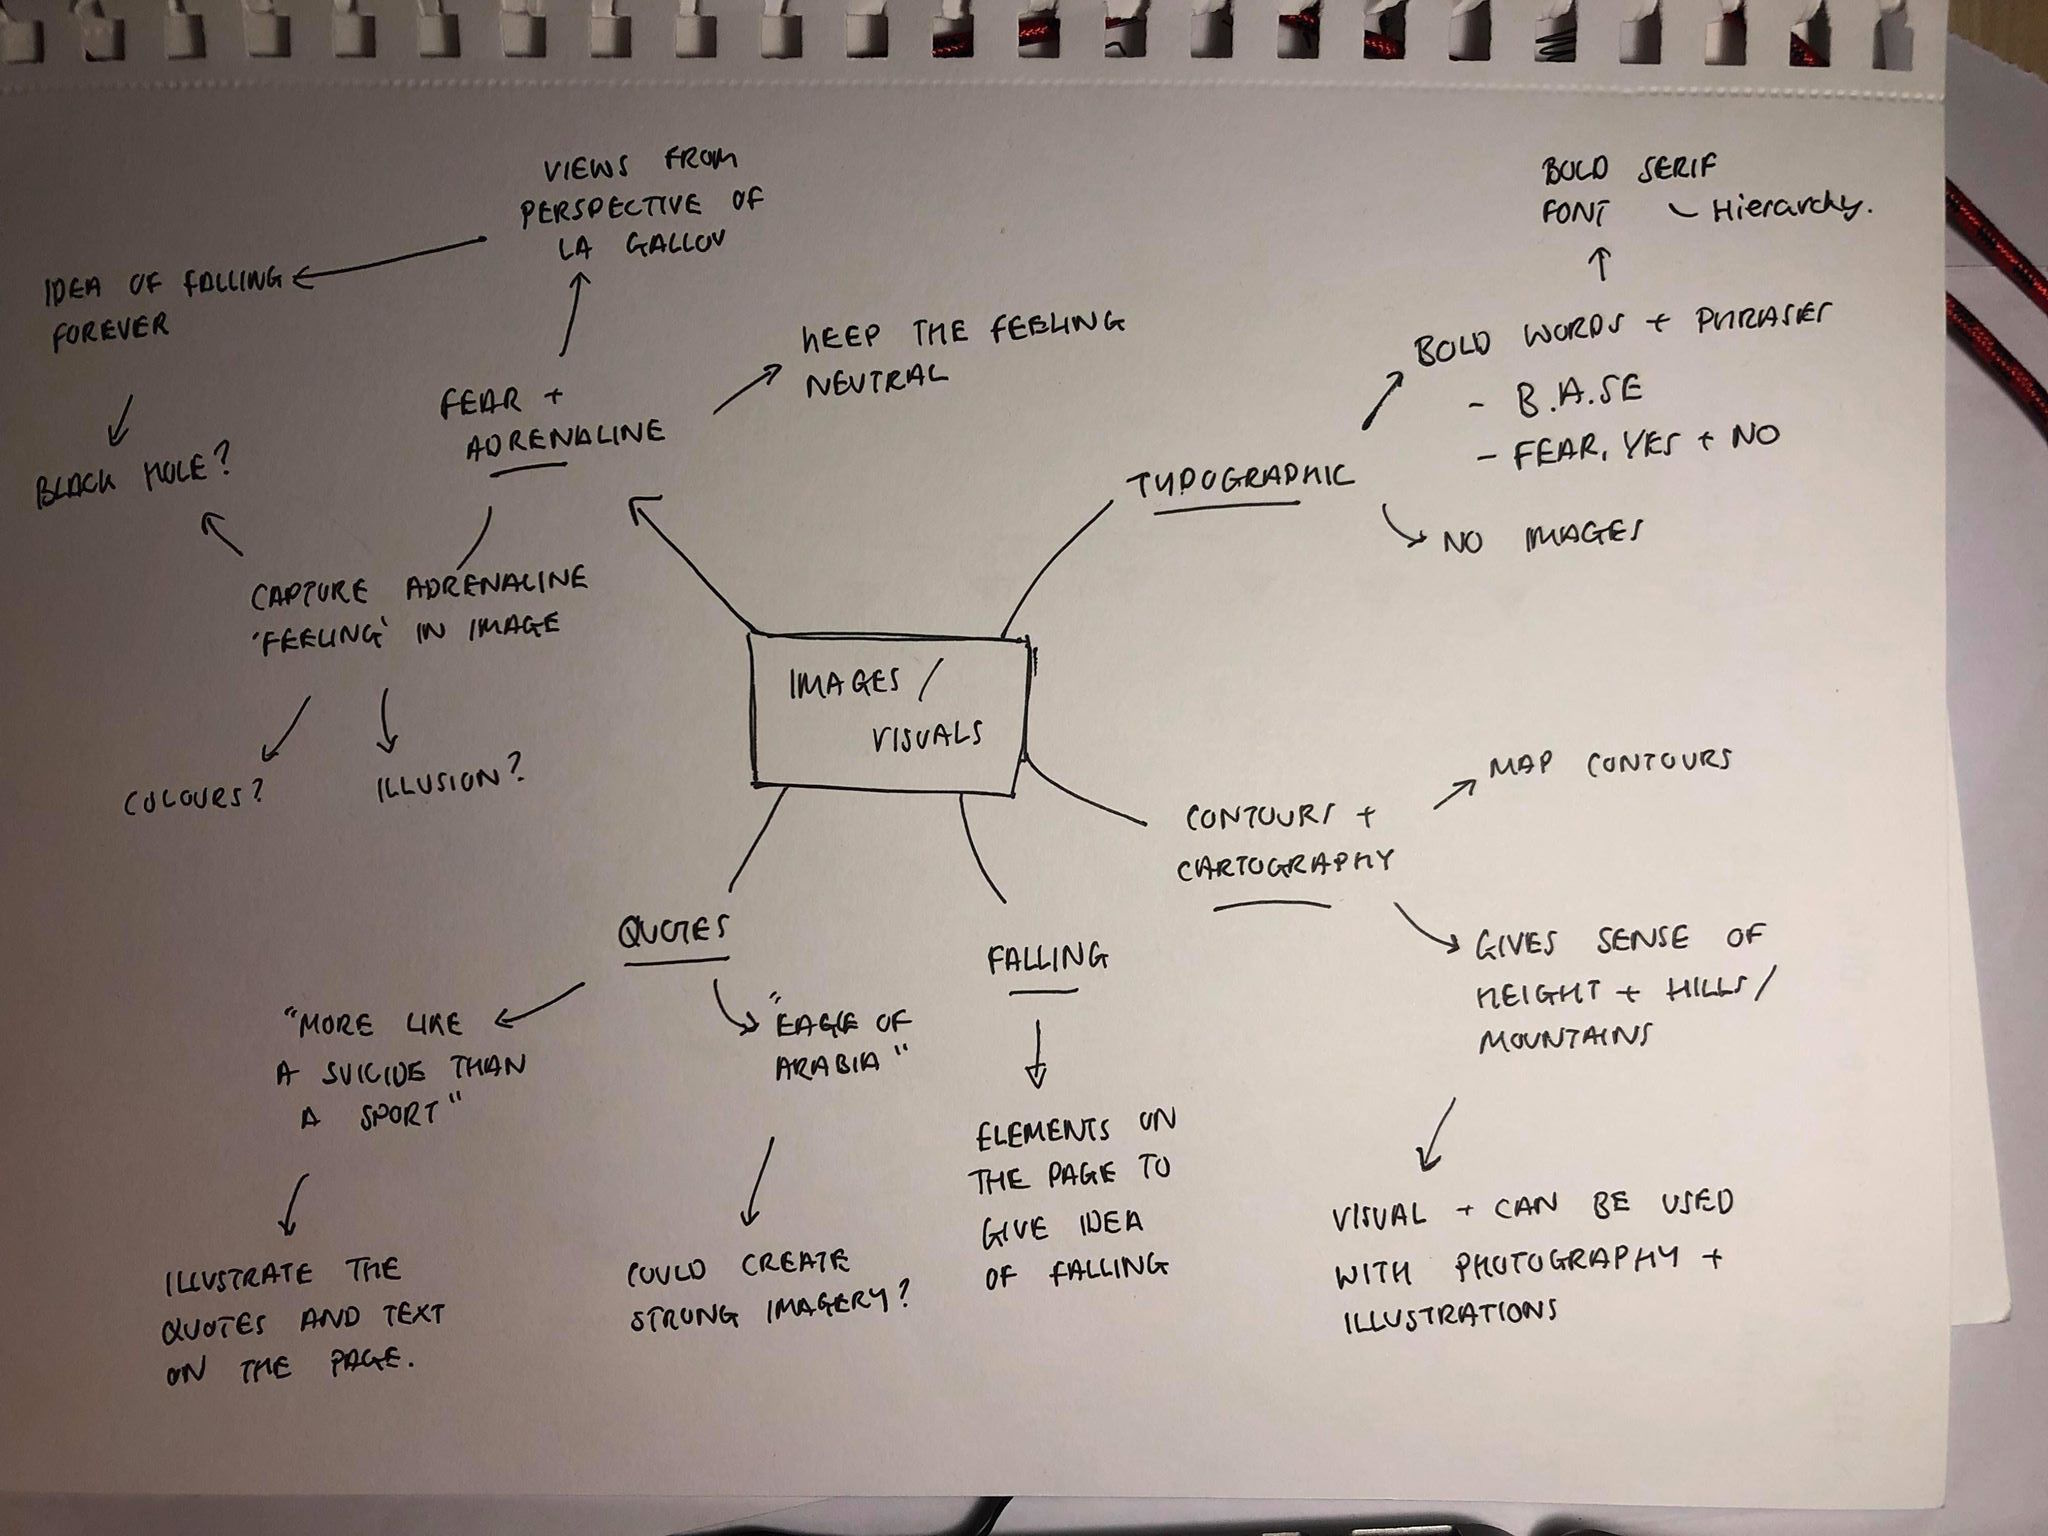 VIEWS FROM
PERSPECTIVE OF
LA GALLOU
IDEA OF FALLING
FOREVER
BLACK HOLE?
FEAR +
ADRENALINE
KEEP THE FEELING
NEUTRAL
CAPTURE ADRENALINE
'FEELING' IN IMAGE
COLOURS?
ILLUSION?
BOLD SERIF
FONT - Hierarchy.
BOLD WORDS + PHRASES
- B.A.SE
- FEAR, YES + NO
TYPOGRAPHIC
NO IMAGES
IMAGES /
VISUALS
CONTOURS +
CARTOGRAPHY
MAP CONTOURS
GIVES SENSE OF
HEIGHT + HILLS /
MOUNTAINS
VISUAL + CAN BE USED
WITH PHOTOGRAPHY +
ILLUSTRATIONS
QUOTES
"MORE LIKE
A SUICIDE THAN
A SPORT"
ILLUSTRATE THE
QUOTES AND TEXT
ON THE PAGE.
"EAGLE OF
ARABIA"
COULD CREATE
STRONG IMAGERY?
FALLING
ELEMENTS ON
THE PAGE TO
GIVE IDEA
OF FALLING